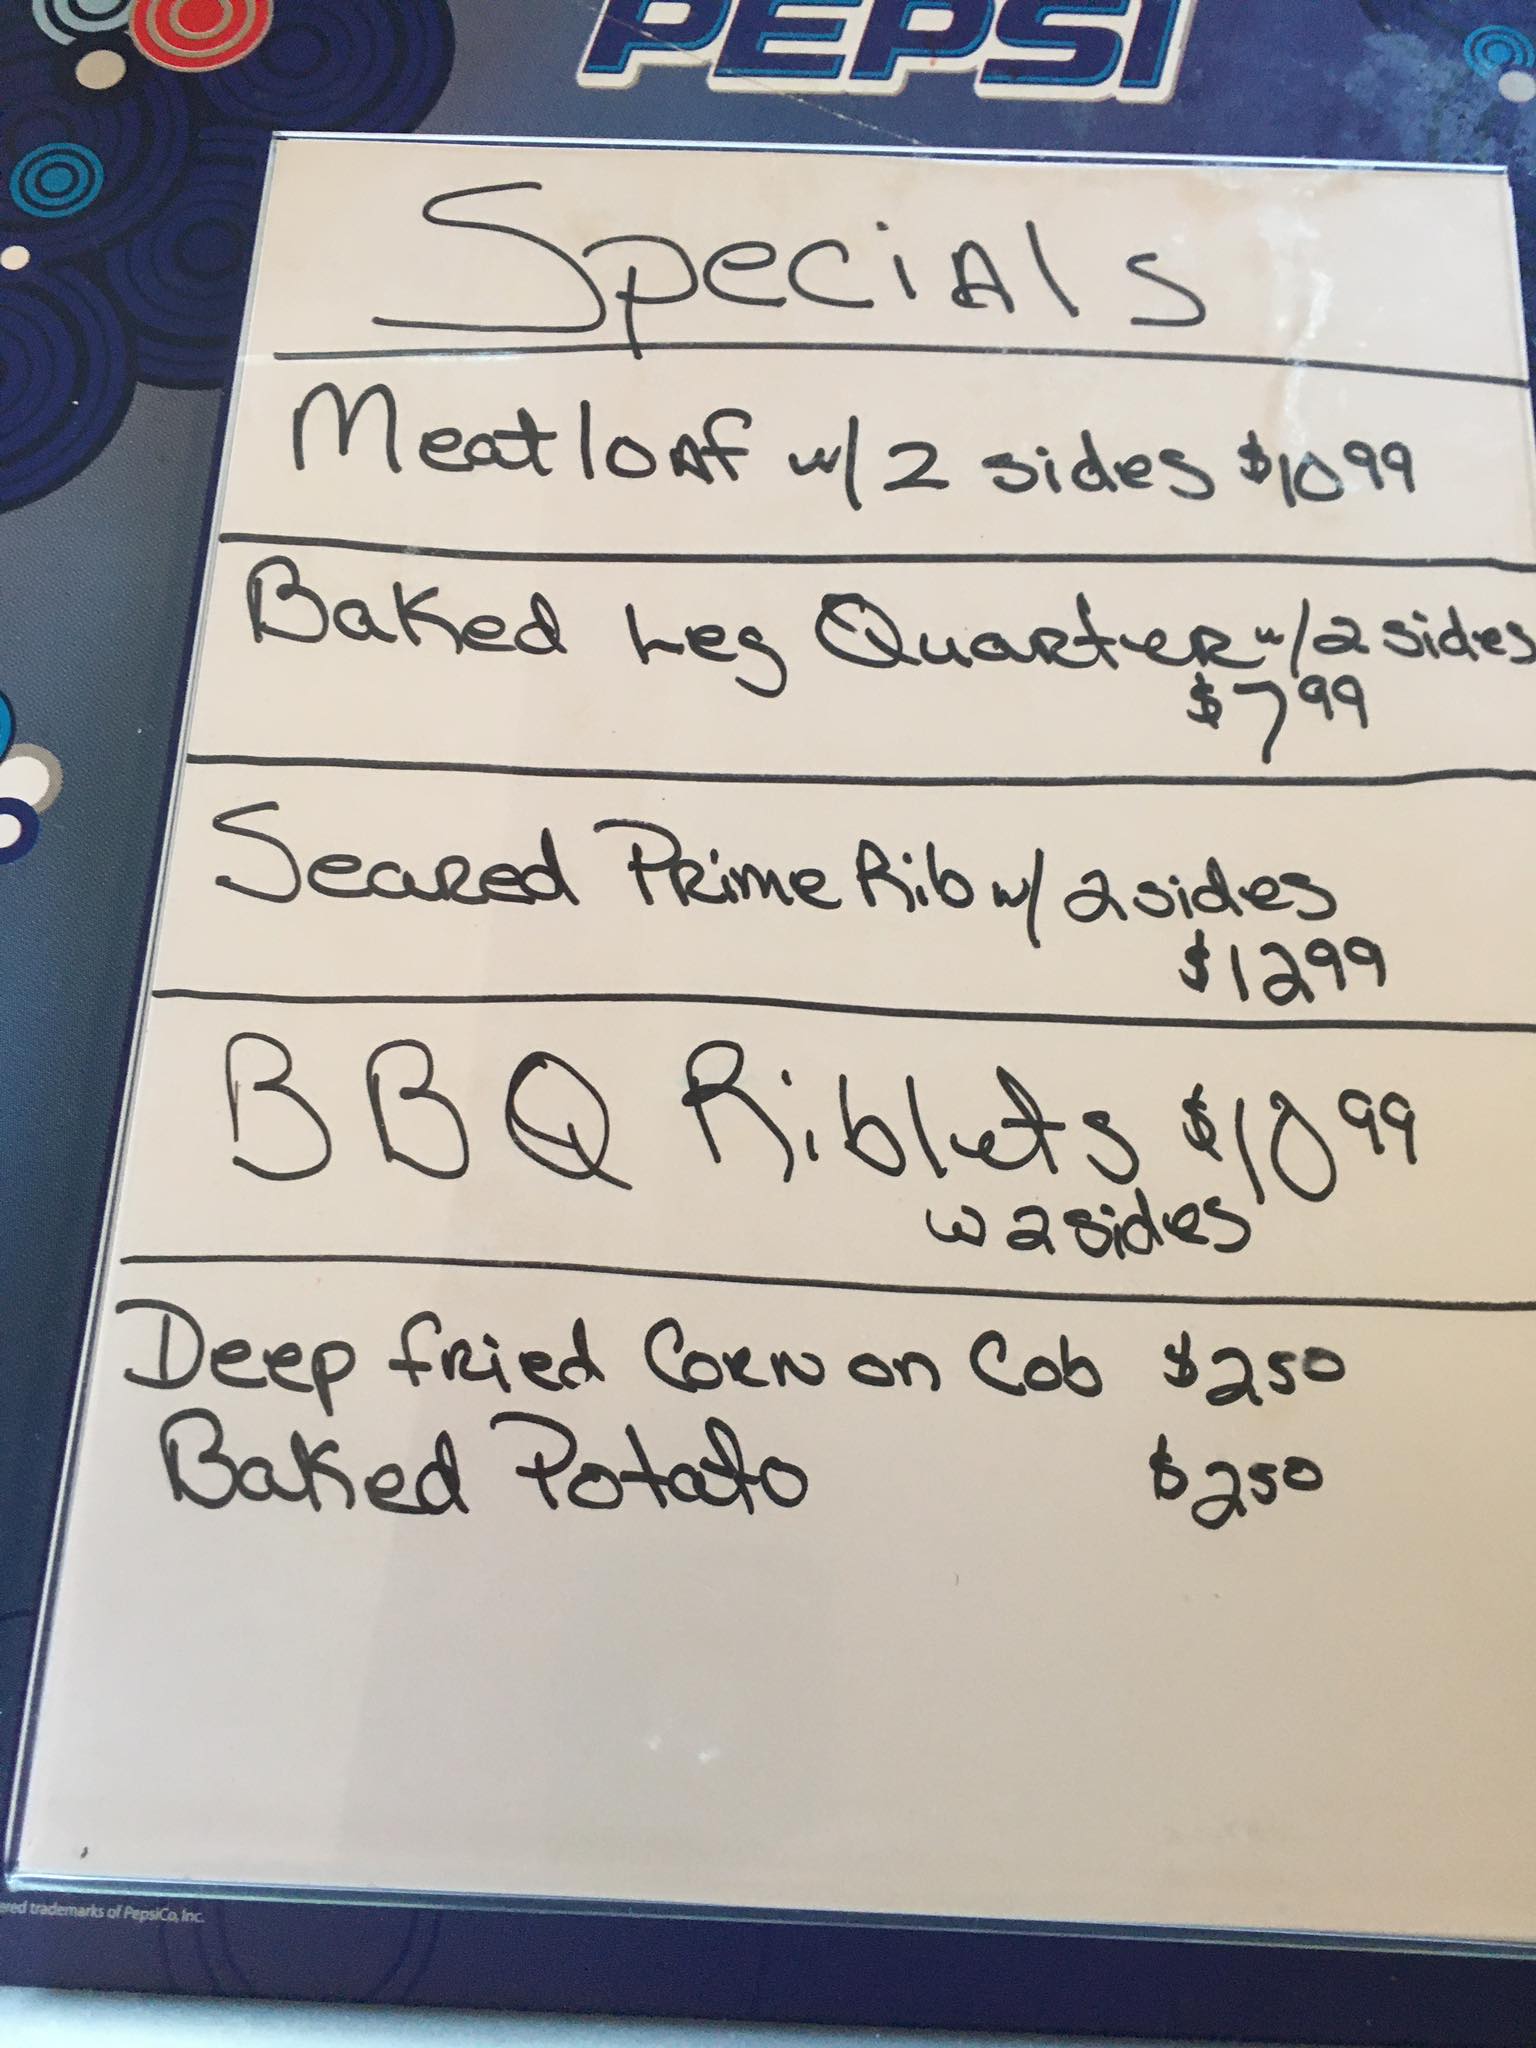 PEPSI
Specials
Meatloaf w/ 2 sides $10 99
Baked Leg Quarter w/ 2 sides
$7 99
Seared Prime Rib w/ 2 sides
$12 99
BBQ Riblets $10 99
w 2 sides
Deep fried Corn on Cob $2 50
Baked Potato $2 50
ered trademarks of PepsiCo, Inc.